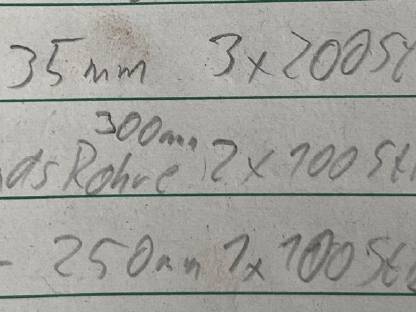 35mm 3x200St
300mm
ds Rohre 2x100St
- 250mm 1x100St